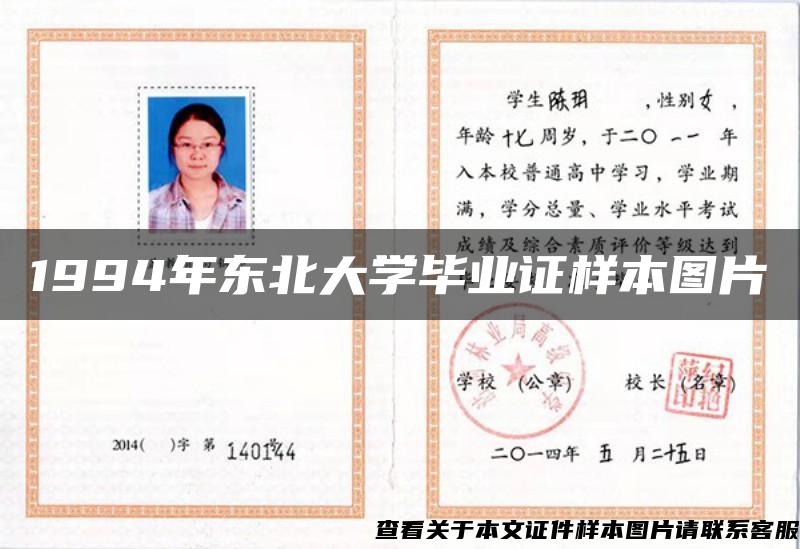 学生陈玥　　，性别女，
年龄十七周岁，于二〇一一年
入本校普通高中学习，学业期
满，学分总量、学业水平考试
成绩及综合素质评价等级达到
1994年东北大学毕业证样本图片
林业局高级中学
学校 (公章)
校长 (名章)
2014( )字 第 140144号
二〇一四年 五 月二十五日
查看关于本文证件样本图片请联系客服